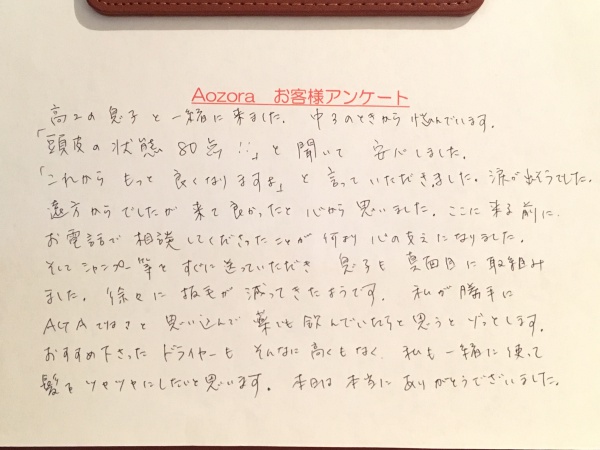 Aozora お客様アンケート
高2の息子と一緒に来ました。中3のときから悩んでいます。
「頭皮の状態80点!!」と聞いて安心しました。
「これからもっと良くなりますよ」と言っていただきました。涙が出そうでした。
遠方からでしたが来て良かったと心から思いました。ここに来る前に、
お電話で相談してくださったことが何より心の支えになりました。
そしてシャンプー等をすぐに送っていただき 息子も真面目に取組み
ました。徐々に抜毛が減ってきたようです。私が勝手に
AGAではと思い込んで薬でも飲んでいたらと思うとゾッとします。
おすすめ下さったドライヤーもそんなに高くもなく、私も一緒に使って
髪をツヤツヤにしたいと思います。本日は本当にありがとうございました。